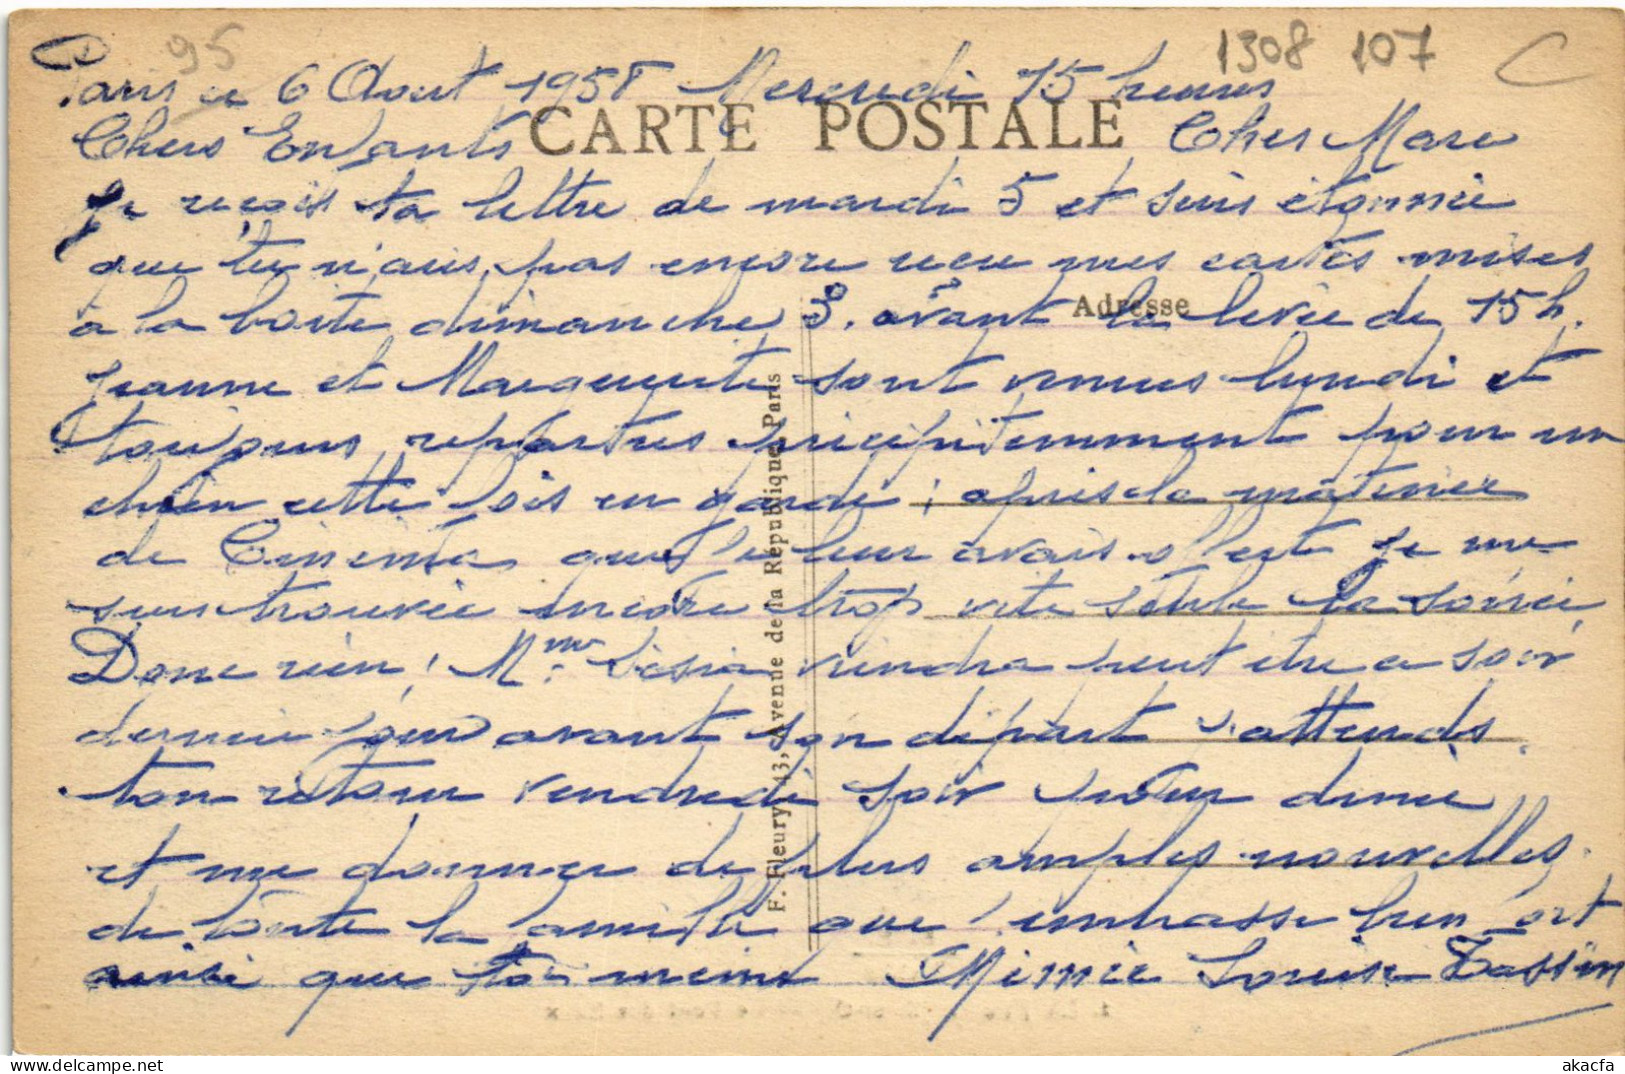 95
1308 107 C
Paris ce 6 Aout 1958 Mercredi 15 heures
CARTE POSTALE
Chers Enfants Cher Marc
Je reçois ta lettre de mardi 5 et suis étonnée
que tu n'ais pas encore recu mes cartes mises
a la boite dimanche 3. avant la levée de 15 h.
Adresse
Jeanne et Marguerite sont venues lundi et
toujours reparties précipitemment pour un
chien cette fois en garde ; après la matinée
de Cinéma que je leur avais offert je me
suis trouvée encore trop vite seule la soirée
Donc rien ! Mme vendra peut etre ce soir
dernier jour avant son départ j'attends
ton retour vendredi soir pour diner
et me donner de plus amples nouvelles.
de toute la famille que j'embrasse bien fort
ainsi que toi meme Mémée Louise Tassin
F. Fleury 43, Avenue de la République, Paris
akacfa